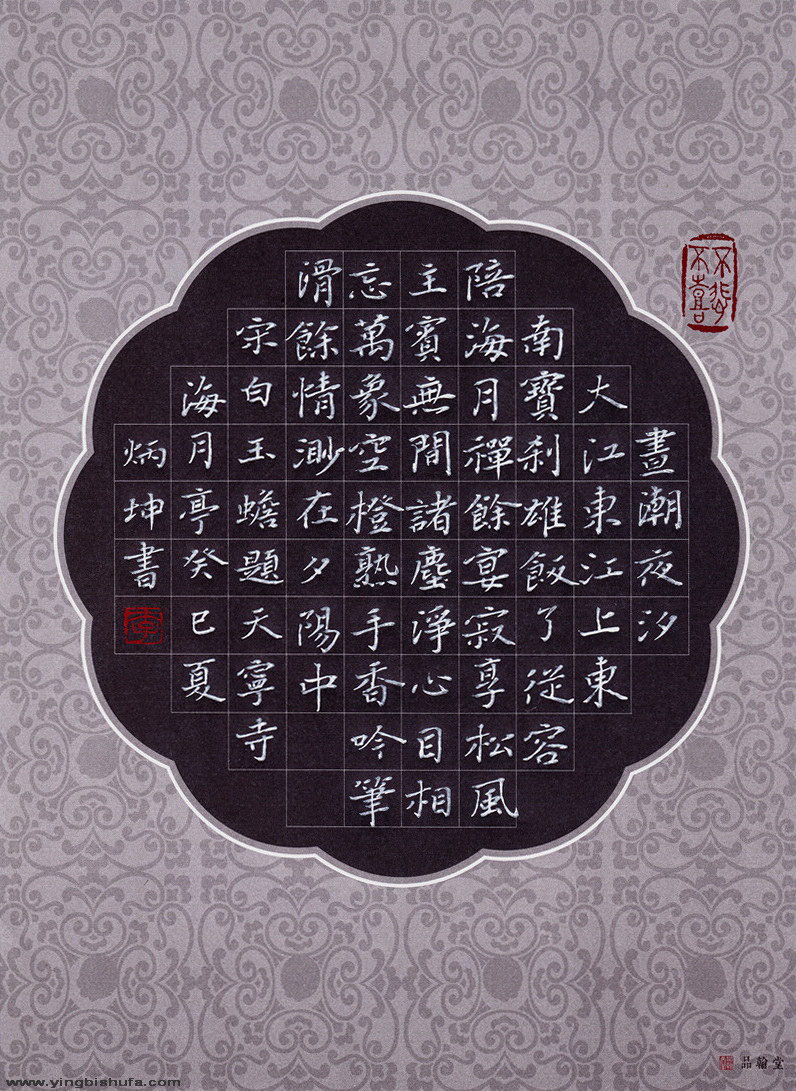 晝潮夜汐
大江東江上東
南寶刹雄飯了從容
陪海月禪餘宴寂享松風
主賓無間諸塵淨心目相
忘萬象空橙熟手香吟筆
滑餘情渺在夕陽中
宗白玉蟾題天寧寺
海月亭癸巳夏
炳坤書
不悲
不喜
品翰堂
www.yingbishufa.com